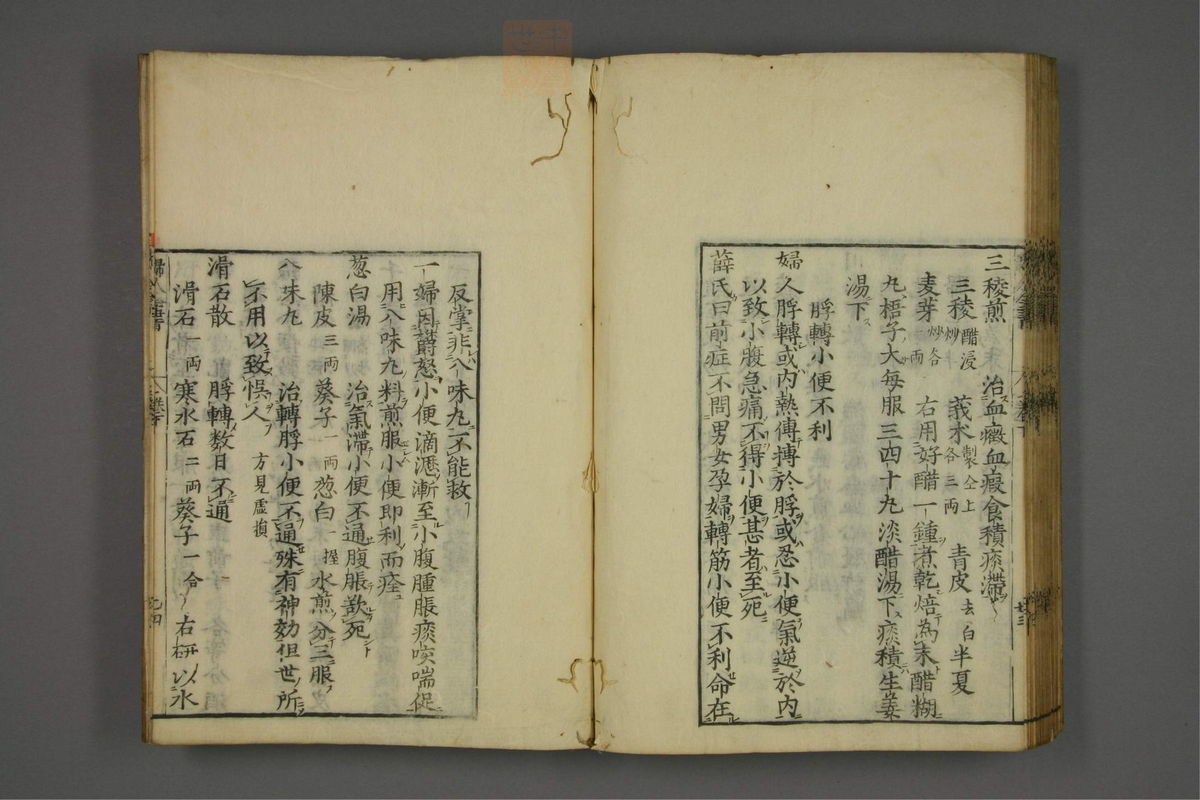 三稜煎　治血癥血瘕食積痰滯
三稜 醋浸炒 莪朮 製仝上各三両 青皮 去白 半夏
麦芽 炒各一両 右用好醋一鍾煮乾焙為末醋糊
丸梧子大每服三四十丸淡醋湯下痰積生姜
湯下
脬轉小便不利
婦人脬轉或内熱傳摶於脬或忍小便氣逆於内
以致小腹急痛不得小便甚者至死
薛氏曰前症不問男女孕婦轉筋小便不利命在
反掌非八味丸不能救
一婦因欝怒小便滴瀝漸至小腹腫脹痰咳喘促
用八味丸料煎服小便即利而痊
葱白湯　治氣滯小便不通腹脹欲死
陳皮 三両 葵子 一両 葱白 一握 水煎分三服
八珠丸　治轉脬小便不通殊有神効但世所
不用以致悞人 方見虚損
滑石散　脬轉数日不通
滑石 一両 寒水石 二両 葵子 一合 右研以水